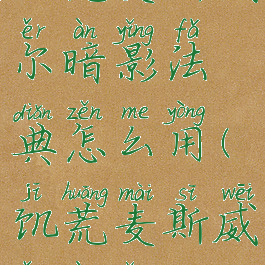 ěr àn yǐng fǎ
尔暗影法
diǎn zěn me yòng
典怎么用(
jī huāng mài sī wēi
饥荒麦斯威